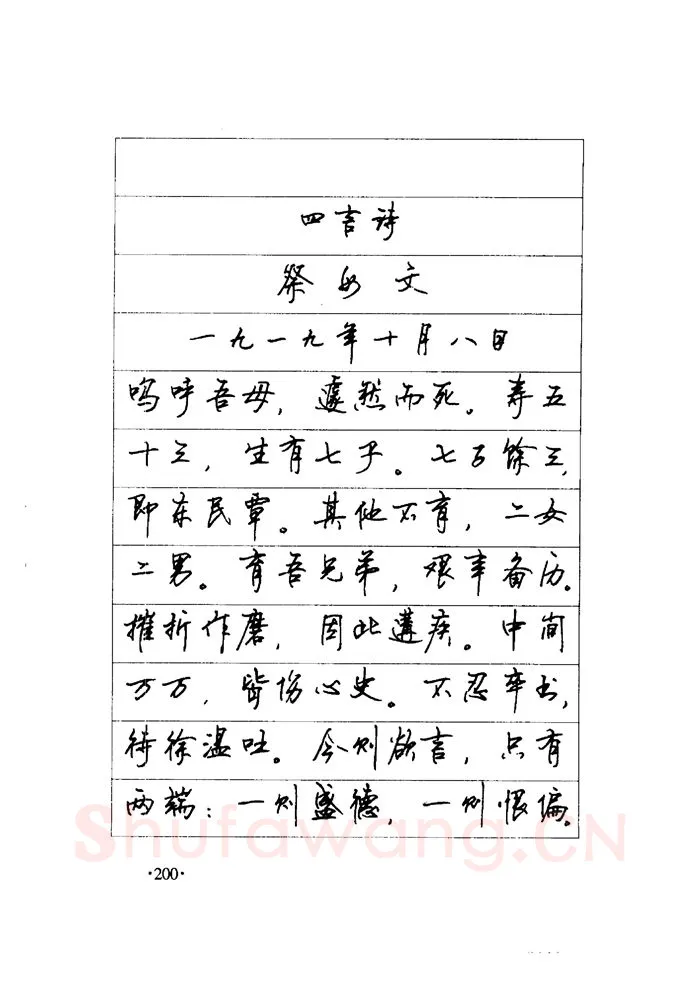 四言诗
祭母文
一九一九年十月八日
呜呼吾母，遽然而死。寿五
十三，生有七子。七子馀三，
即东民覃。其他不育，二女
二男。育吾兄弟，艰辛备历。
摧折作磨，因此遘疾。中间
万万，皆伤心史。不忍卒书，
待徐温吐。今则欲言，只有
两端：一则盛德，一则恨偏。
Shufawang.CN
·200·